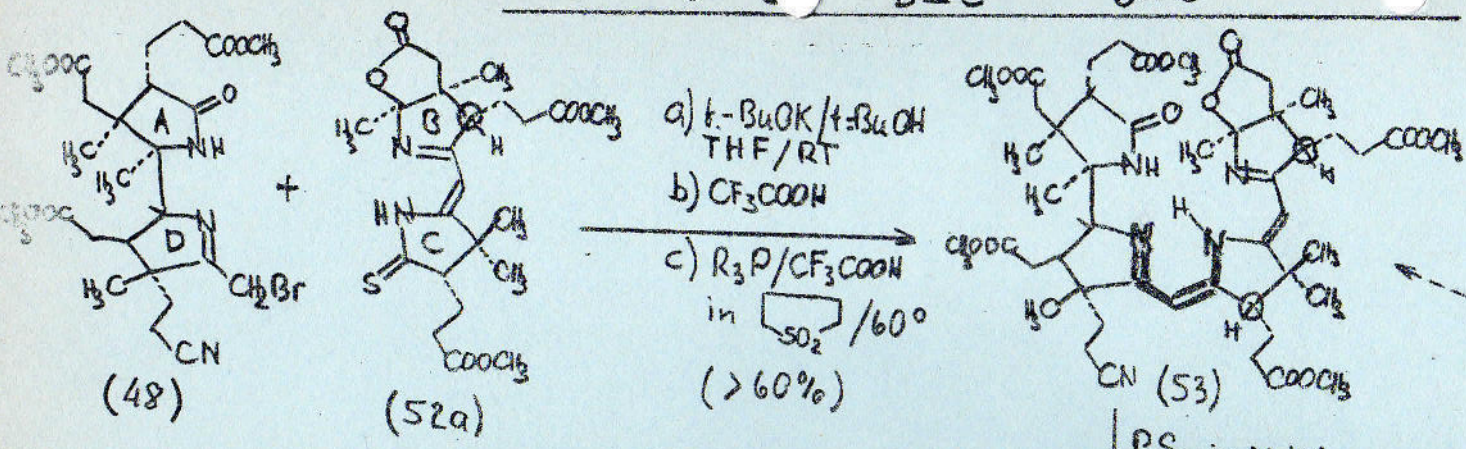 COOCH3
CH3OOC
O
A
NH
H3C
H3C
CH3OOC
D
N
H3C
CH2Br
CN
(48)
+
O
O
CH3
B
H3C
N
H
COOCH3
HN
C
CH3
CH3
S
COOCH3
(52a)
a) t.-BuOK/t-BuOH
THF/RT
b) CF3COOH
c) R3P/CF3COOH
in SO2 /60°
(>60%)
CH3OOC
COOCH3
O
H3C
NH
H3C
O
O
CH3
H3C
N
H
COOCH3
CH3OOC
N
H
N
H3C
CH3
CH3
H
CN
(53)
COOCH3